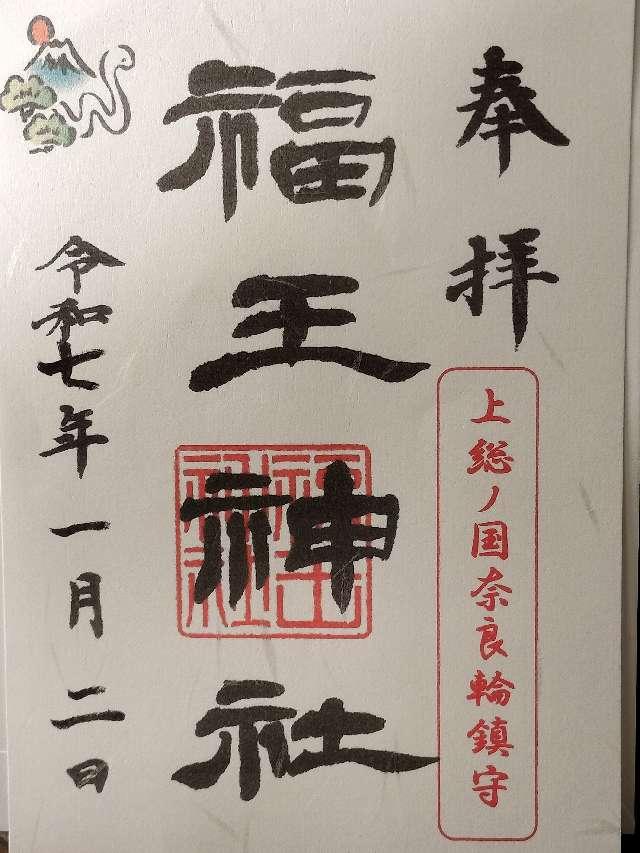 奉拝
上総ノ国奈良輪鎮守
福王神社
福王神社
令和七年一月二日